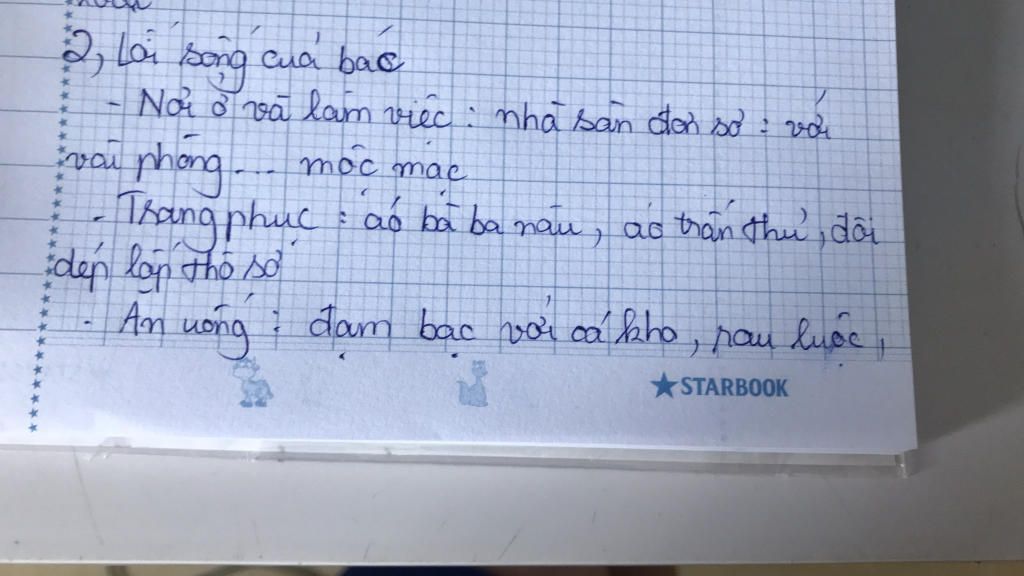 2, Lối sống của bác
- Nơi ở và làm việc : nhà sàn đơn sơ : với
vài phòng... mộc mạc
- Trang phục : áo bà ba nâu, áo trấn thủ, đôi
dép lốp thô sơ
- Ăn uống : đạm bạc với cá kho, rau luộc,
★STARBOOK